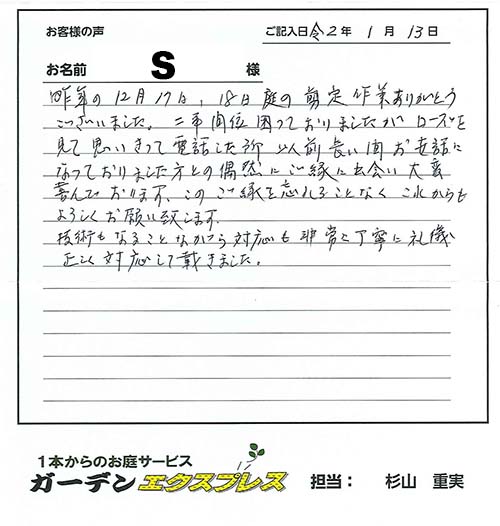 お客様の声
ご記入日 令2年 1月 13日
お名前 S 様
昨年の12月17日、18日庭の剪定作業ありがとう
ございました。二年間位困っておりましたが ローズを
見て思いきって電話した所 以前長い間お世話に
なっておりました方との偶然にご縁に出会い大変
喜んでおります、このご縁を忘れることなくこれからも
よろしくお願い致します
技術もなることながら対応も非常に丁寧に礼儀
正しく対応して戴きました。
1本からのお庭サービス
ガーデンエクスプレス 担当： 杉山 重実